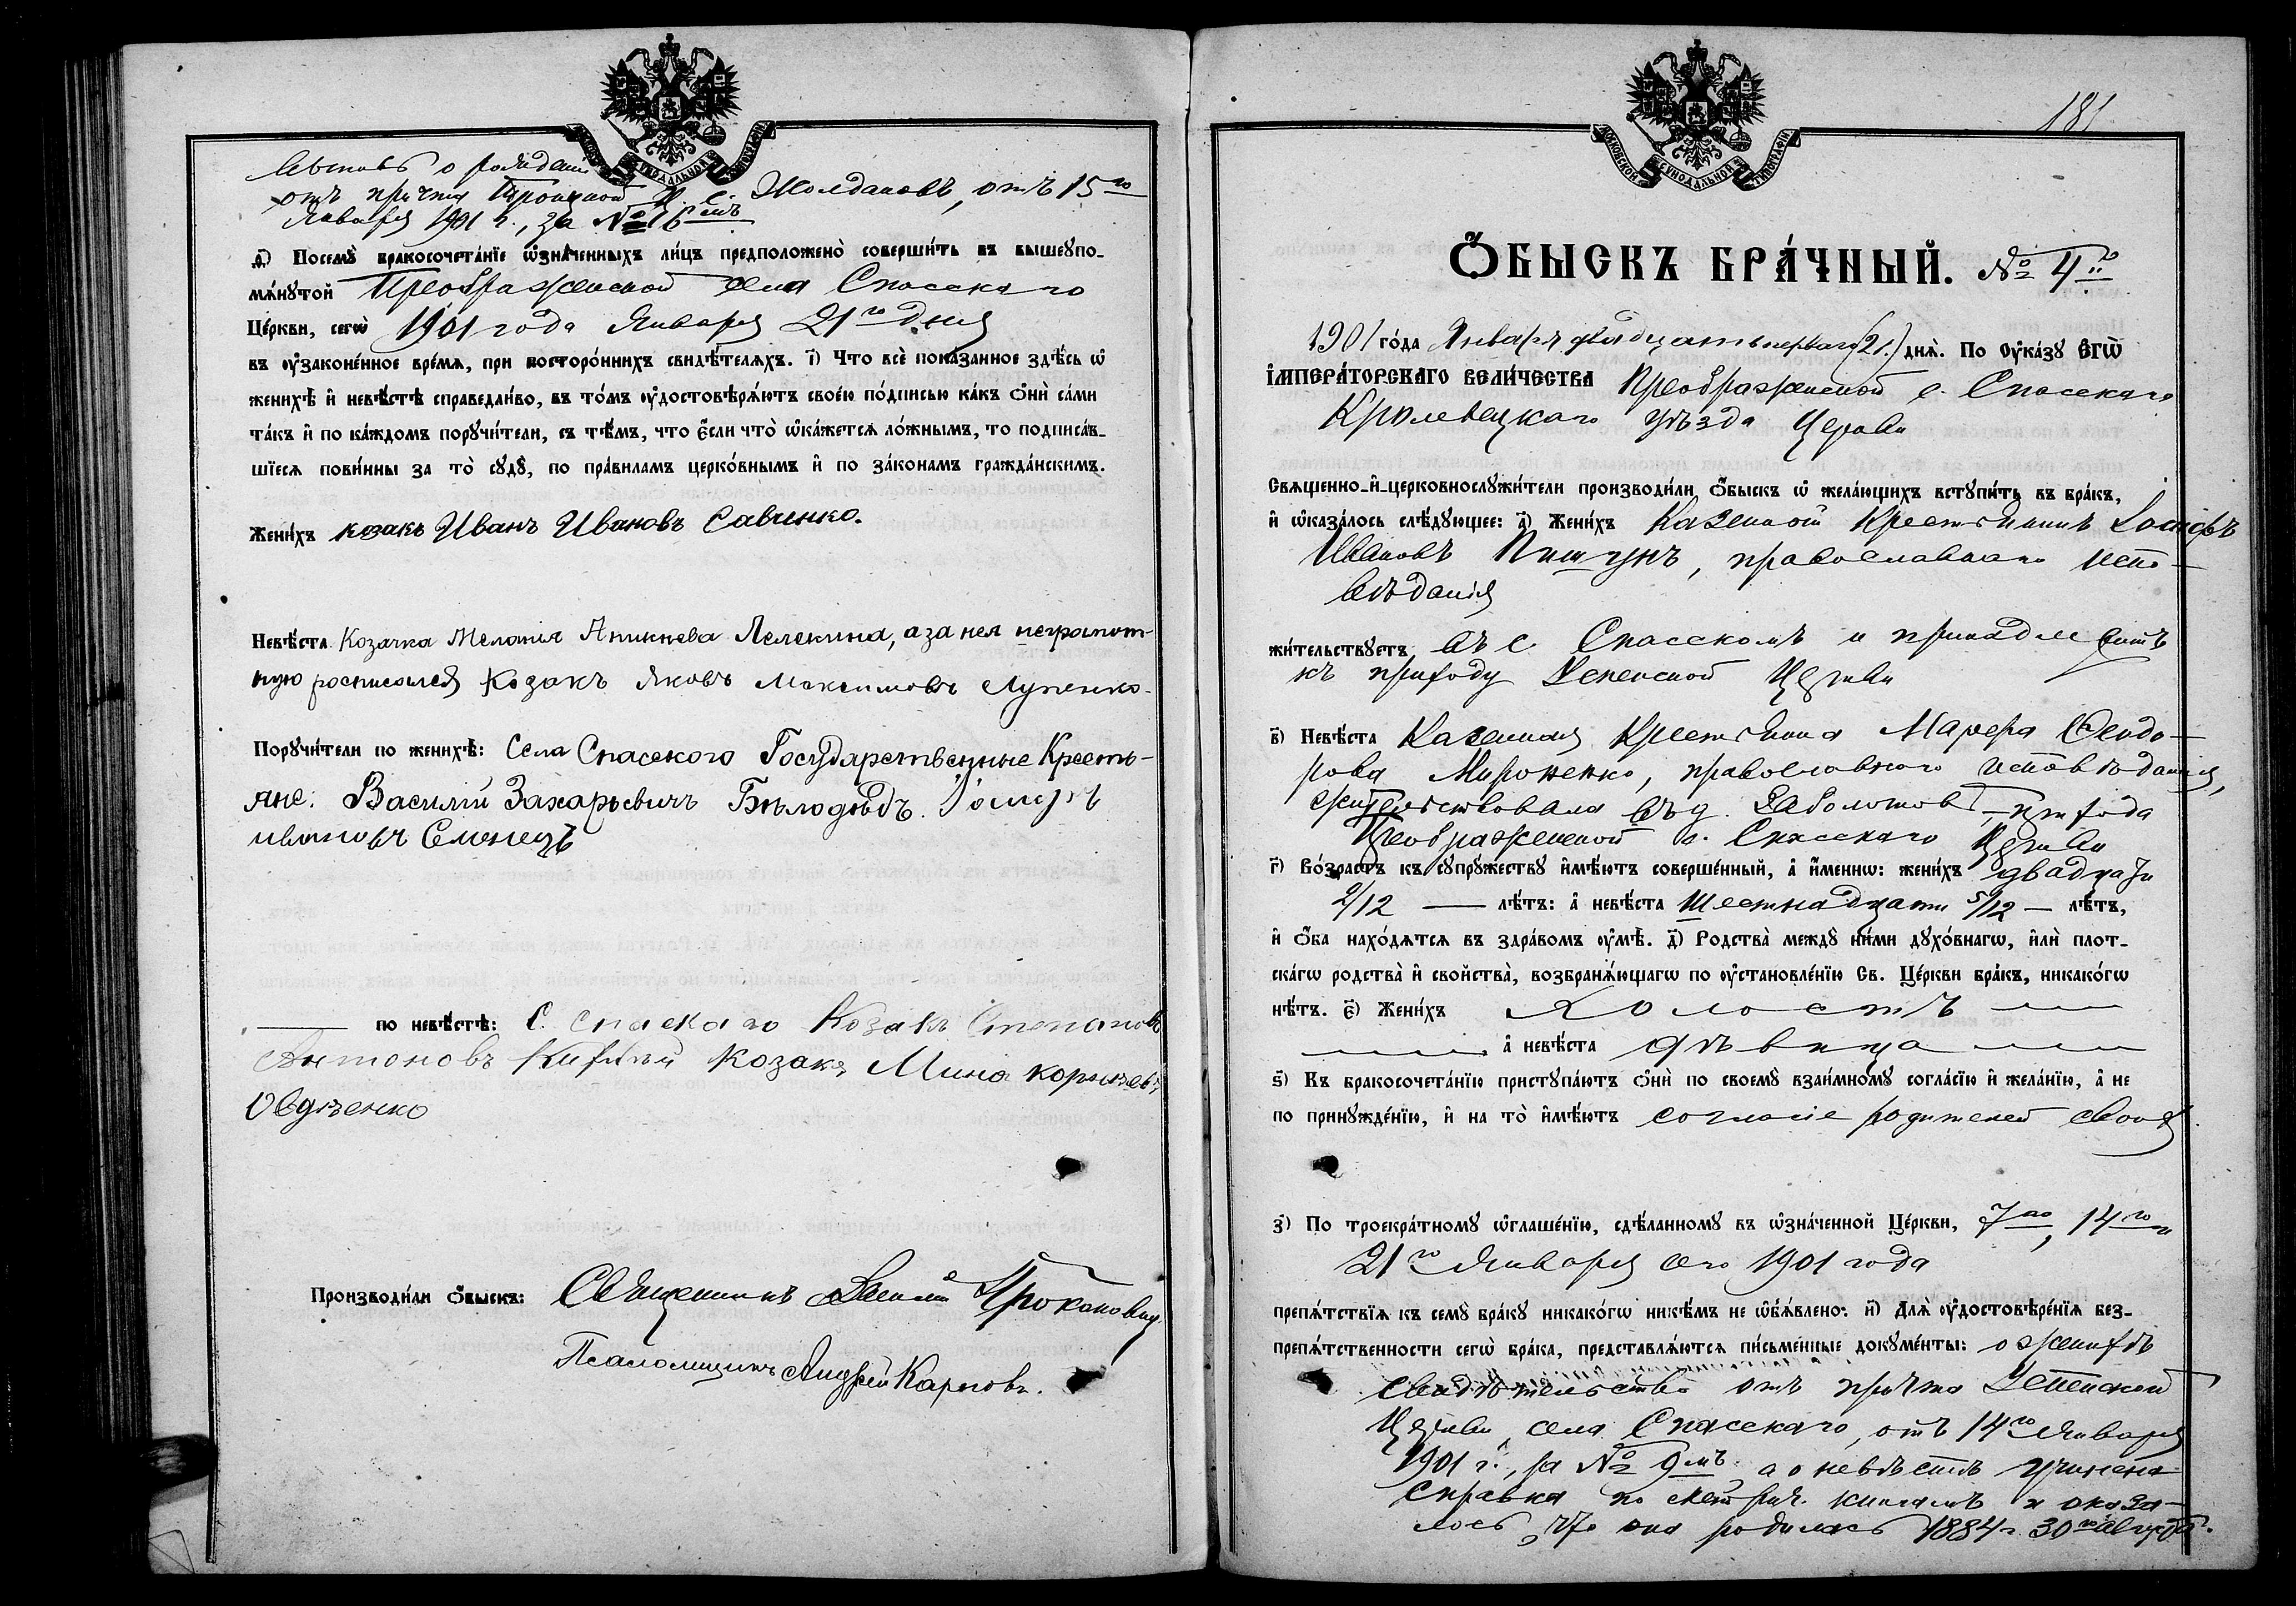 МОСКОВСКОЙ СѴНОДАЛЬНОЙ ТИПОГРАФІИ
о рождении
отъ причта Троицкой ц. с. Жолдаковъ, отъ 15го
Января 1901 г., за № 16мъ
д҃) Посемꙋ̀ бракосочета́нїе ѡ҆зна́ченныхъ ли́цъ предположено̀ соверши́ть въ вышеꙋпо-
мѧ́нꙋтой Преображенской села Спасскаго
Це́ркви, сегѡ̀ 1901 года Января 21го дня
въ ᲂу҆законе́нное вре́мѧ, при посторо́ннихъ свидѣ́телѧхъ. і҃) Что всѐ пока́занное здѣ́сь ѡ҆
женихѣ̀ и҆ невѣ́стѣ справедли́во, въ то́мъ ᲂу҆достовѣрѧ́ютъ свое́ю по́дписью ка́къ ѻ҆нѝ са́ми
та́къ и҆ по ка́ждомъ порꙋчи́тели, съ тѣ́мъ, что є҆́сли что̀ ѡ҆ка́жетсѧ ло́жнымъ, то подписа́в-
шїесѧ пови́нны за то̀ сꙋдꙋ̀, по пра́виламъ церко́внымъ и҆ по зако́намъ гражда́нскимъ.
Жени́хъ козакъ Иванъ Ивановъ Савченко.
Невѣ́ста Козачка Меланія Аникиева Лелекина, а за нея неграмот-
ную росписался Козакъ Яковъ Максимовъ Лупенко.
Порꙋчи́тели по женихѣ̀: Села Спаского Государственные Кресть-
яне: Василій Захарьевичъ Бѣлодѣдъ. Іосифъ
ивановъ Семенецъ
по невѣ́стѣ: С. Спаскаго Козакъ Степановъ
Антоновъ козакъ Мина
Овдіенко
Производи́ли ѻ҆́быскъ: Священникъ Василій Прокоповичъ
Псаломщикъ Андрей Карповъ.
МОСКОВСКОЙ СѴНОДАЛЬНОЙ ТИПОГРАФІИ
181
Ѻ҆́БЫСКЪ БРА́ЧНЫЙ. № 4й
1901 го́да Января двадцать перваго (21.) днѧ̀. По ᲂу҆ка́зꙋ Є҆ГѠ̀
І҆МПЕРА́ТОРСКАГО ВЕЛИ́ЧЕСТВА Преображенской с. Спасскаго
Кролевецкаго уѣзда Церкви
Свѧщенно-и҆-церковнослꙋжи́тели производи́ли ѻ҆́быскъ ѡ҆ жела́ющихъ встꙋпи́ть въ бра́къ,
и҆ ѡ҆каза́лось слѣ́дꙋющее: а҃) Жени́хъ Казенный Крестьянинъ Іосифъ
Ивановъ Пищунъ, православнаго испо-
вѣданія
жи́тельствꙋетъ въ с. Спасскомъ и принадлежитъ
къ приходу Успенской Церкви
в҃) Невѣ́ста Казенная Крестьянка Марфа Феодо-
рова Мироненко, православного исповѣданія,
жительствовала въ д. Заболотовѣ, прихода
Преображенской с. Спасскаго Церкви
г҃) Во́зрастъ къ сꙋпрꙋ́жествꙋ и҆мѣ́ютъ соверше́нный, а҆ и҆́меннѡ: жени́хъ двадцати
2/12 — лѣ́тъ: а҆ невѣ́ста Шестнадцати 5/12 — лѣ́тъ,
и҆ ѻ҆́ба нахо́дѧтсѧ въ здра́вомъ ᲂу҆мѣ̀. д҃) Родства̀ междꙋ̀ ни́ми дꙋхо́внагѡ, и҆лѝ плот-
ска́гѡ родства̀ и҆ сво́йства, возбранѧ́ющагѡ по ᲂу҆становле́нїю Св. Це́ркви бра́къ, никако́гѡ
нѣ́тъ. є҃) Жени́хъ Холостъ
а҆ невѣ́ста дѣвица
ѕ҃) Къ бракосочета́нїю пристꙋпа́ютъ ѻ҆нѝ по своемꙋ̀ взаи́мномꙋ согла́сїю и҆ жела́нїю, а҆ не
по принꙋжде́нїю, и҆ на то̀ и҆мѣ́ютъ согласіе родителей своихъ
з҃) По троекра́тномꙋ ѡ҆глаше́нїю, сдѣ́ланномꙋ въ ѡ҆зна́ченной Це́ркви, 7го, 14го и
21го Января сего 1901 года
препѧ́тствїѧ къ семꙋ̀ бра́кꙋ никако́гѡ никѣ́мъ не ѡ҆б̾ѧ́влено: и҃) Длѧ̀ ᲂу҆достовѣре́нїѧ без-
препѧ́тственности сегѡ̀ бра́ка, представлѧ́ютсѧ пи́сьменные докꙋме́нты: о женихѣ
свидѣтельство отъ причта Успенской
Церкви села Спасскаго, отъ 14го Января
1901 г., за № 9мъ, а о невѣстѣ учинена
справка по метрич. книгамъ и оказа-
лось, что она родилась 1884 г. 30го Августа.